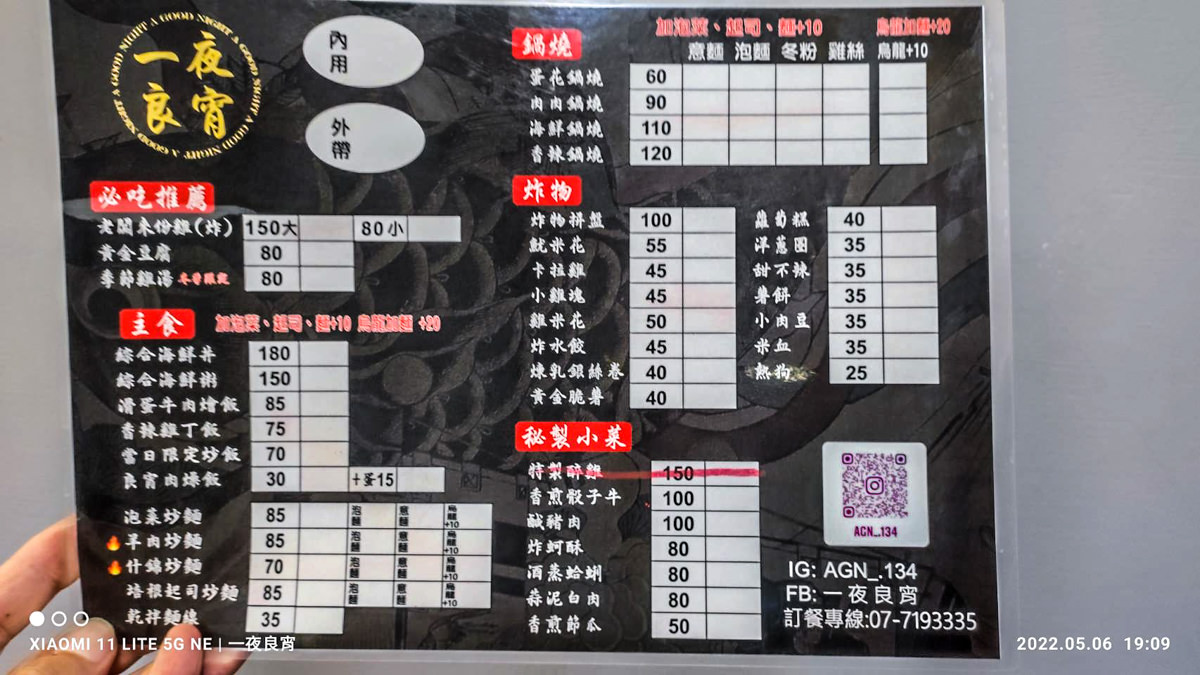 A GOOD NIGHT A GOOD NIGHT A GOOD NIGHT A GOOD NIGHT
一夜
良宵
內用
外帶
必吃推薦
老闆來份雞(炸) 150大 80小
黃金豆腐 80
季節雞湯 冬季限定 80
主食 加泡菜、起司、麵+10 烏龍加麵 +20
綜合海鮮丼 180
綜合海鮮粥 150
滑蛋牛肉燴飯 85
香辣雞丁飯 75
當日限定炒飯 70
良宵肉燥飯 30 +蛋15
泡菜炒麵 85 泡麵 意麵 烏龍+10
羊肉炒麵 85 泡麵 意麵 烏龍+10
什錦炒麵 70 泡麵 意麵 烏龍+10
培根起司炒麵 85 泡麵 意麵 烏龍+10
乾拌麵線 35
加泡菜、起司、麵+10 烏龍加麵+20
鍋燒 意麵 泡麵 冬粉 雞絲 烏龍+10
蛋花鍋燒 60
肉肉鍋燒 90
海鮮鍋燒 110
香辣鍋燒 120
炸物
炸物拼盤 100 蘿蔔糕 40
魷米花 55 洋蔥圈 35
卡拉雞 45 甜不辣 35
小雞塊 45 薯餅 35
雞米花 50 小肉豆 35
炸水餃 45 米血 35
煉乳銀絲卷 40 熱狗 25
黃金脆薯 40
秘製小菜
特製醉雞 150
香煎骰子牛 100
鹹豬肉 100
炸蚵酥 80
酒蒸蛤蜊 80
蒜泥白肉 80
香煎節瓜 50
AGN_.134
IG: AGN_.134
FB: 一夜良宵
訂餐專線:07-7193335
XIAOMI 11 LITE 5G NE | 一夜良宵
2022.05.06 19:09